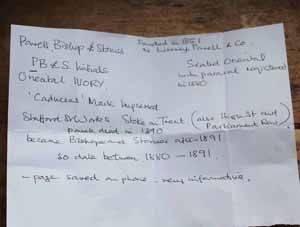 Powell Bishop & Stonier
Founded in 1851
by Livesey Powell & Co.
PB & S. initials
Oriental IVORY.
Sealed Oriental
with pattern registered
in 1880
'Caduceus' Mark Impressed
Stafford St Works Stoke on Trent (also High St and
Parliament Row)
Powell died in 1890
became Bishop and Stonier after 1891
so date between 1880 - 1891.
- page saved on phone - very informative.